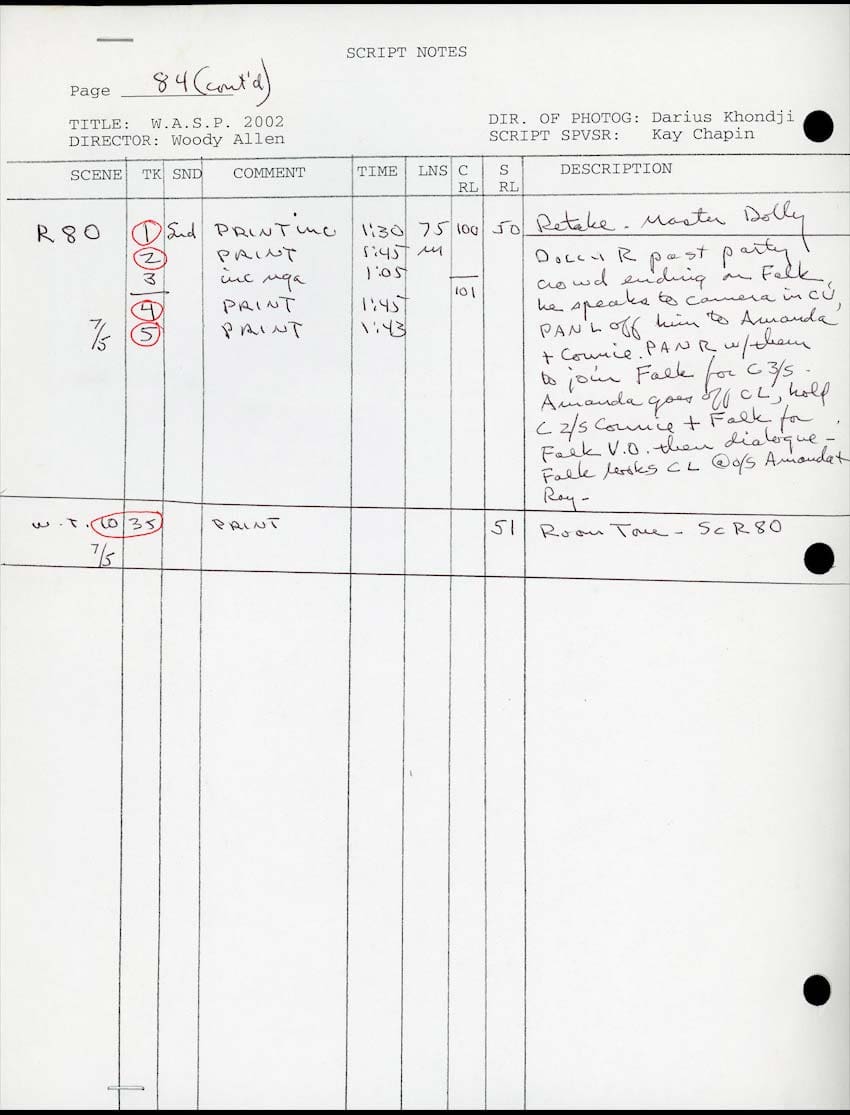 SCRIPT NOTES
Page 84 (cont'd)
TITLE: W.A.S.P. 2002
DIRECTOR: Woody Allen
DIR. OF PHOTOG: Darius Khondji
SCRIPT SPVSR: Kay Chapin
SCENE TK SND COMMENT TIME LNS C RL S RL DESCRIPTION
R80 1 Snd PRINT inc 1:30 75 100 50 Retake. Master Dolly
2 PRINT 1:45 m
3 inc nga 1:05
4 PRINT 1:45 101
7/5 5 PRINT 1:43
Dolly R past party
crowd ending on Falk,
he speaks to camera in CU,
PAN L off him to Amanda
+ Connie. PAN R w/them
to join Falk for C 3/s.
Amanda goes off CL, hold
C 2/s Connie + Falk for
Falk V.O. then dialogue -
Falk looks CL @ o/s Amanda +
Roy -
W.T. 1035 PRINT 51 Room Tone - Sc R80
7/5